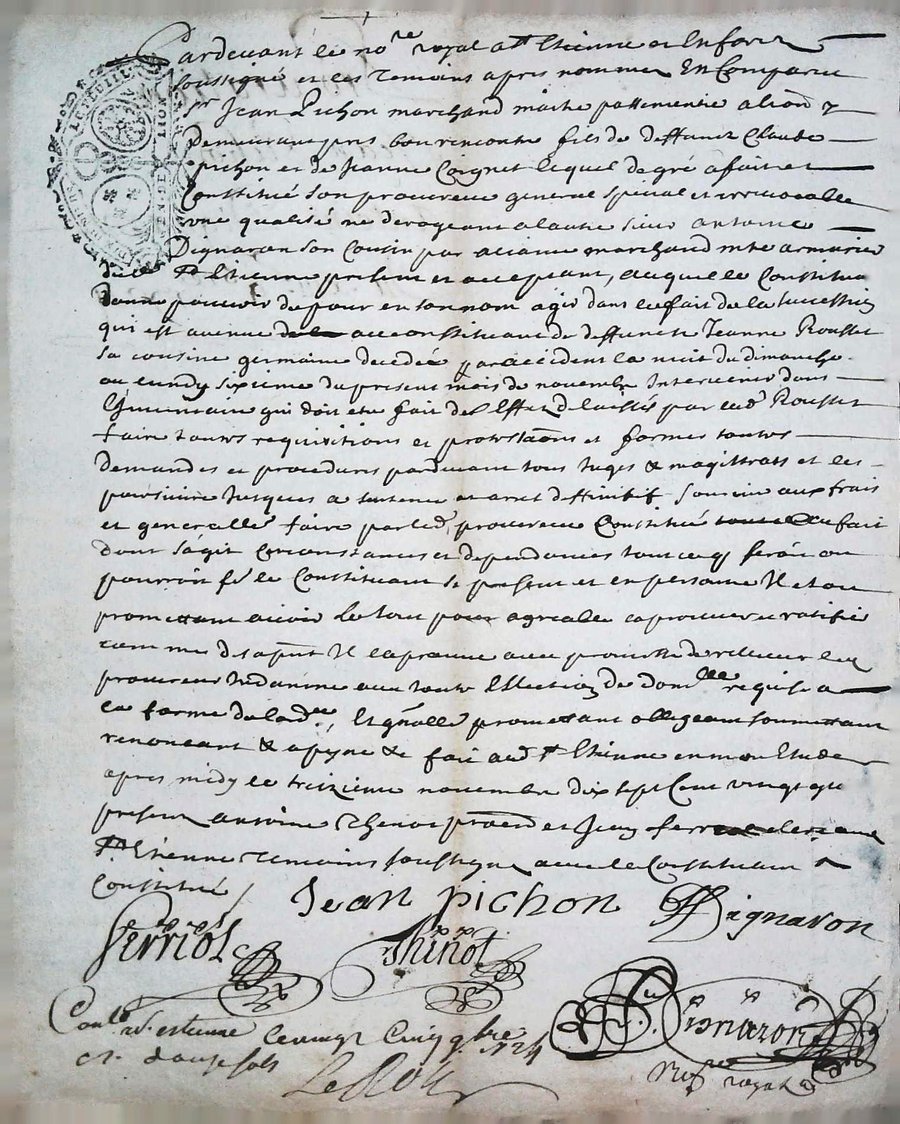 Pardevant le nore royal a St Etienne en forez
soussigné et les temoins apres nommes En Comparu
sr Jean Pichon marchand maitre passementie a lion y
Demeurant pres bourincontre fils de deffunct Claude
pichon et de Jeanne Coignet lequel de gré a fait et
Constitué son procureur general special et irrevocable
une qualité ne derogeant a lautre sieur antoine
Dignaron son Cousin par aliance marchand mtre armurie
de St Etienne present et acceptant, auquel le Constituant
donne pouvoir de pour en son nom agir dans le fait de la succession
qui est avenue au constituant de deffuncte Jeanne Rousset
sa cousine germaine decedée par accident la nuit du dimanche
au lundy sixieme du present mois de novembre Intervenir dans
lInventaire qui doit etre fait des Effets delaissés par lad Rousset
faire toutes requisitions et protestaons et former toutes
Demandes et procedures pardevant tous Juges & magistrats et les
poursuivre Jusques a sentence et arret deffinitif souvenir aux frais
et generallet faire par led procureur Constitué au fait
dont sagit Circonstances et dependances tout ce q feroit ou
pourroit fe le Constituant sy present et en personne Il etoit
promettant avoir le tout pour agreable approuver et ratifie
comme Des apnt Il lapprouve avec promesse de relever led
procureur Indamne avec toute Ellection de domlle requise a
la forme de lordce, Et gnalle promettant obligeant soumettant
renoncant & a peyne & fait aud St Etienne en mon Etude
apres midy le treizieme novembre dix sept Cent vingt qu
presens antoine thenot praen et Jean ferriol clerc aud
St Etienne temoins soussignes avec le Constituant &
Constitué /
Jean pichon Dignaron
ferriol thinot
Contlé a St estienne le vingt Cinq 9bre 1724
rt douze sols
Pignaron
Nore royal